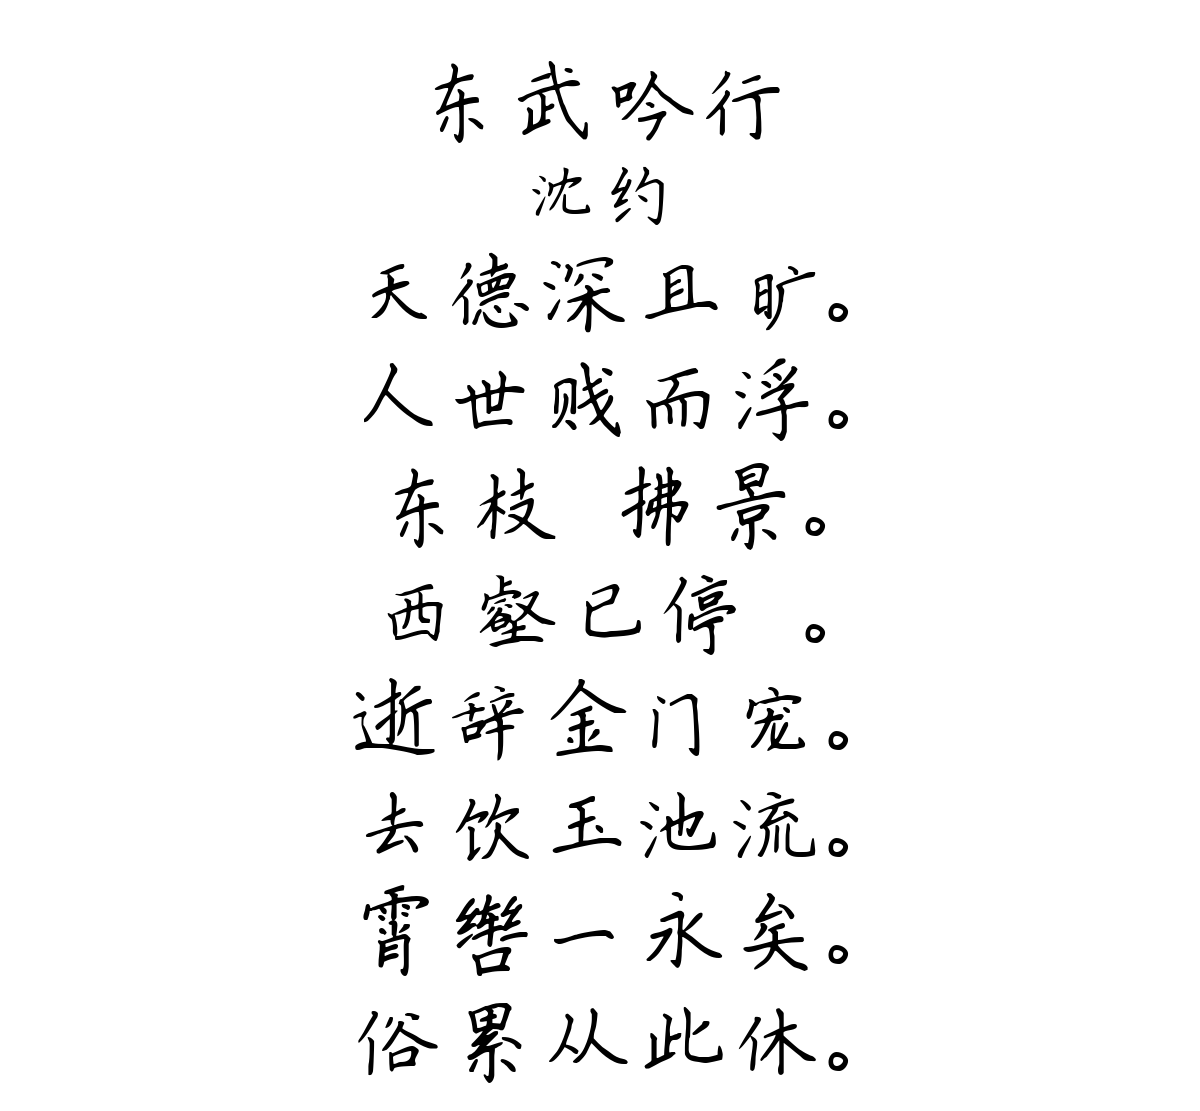 东武吟行
沈约
天德深且旷。
人世贱而浮。
东枝 拂景。
西壑已停 。
逝辞金门宠。
去饮玉池流。
霄辔一永矣。
俗累从此休。